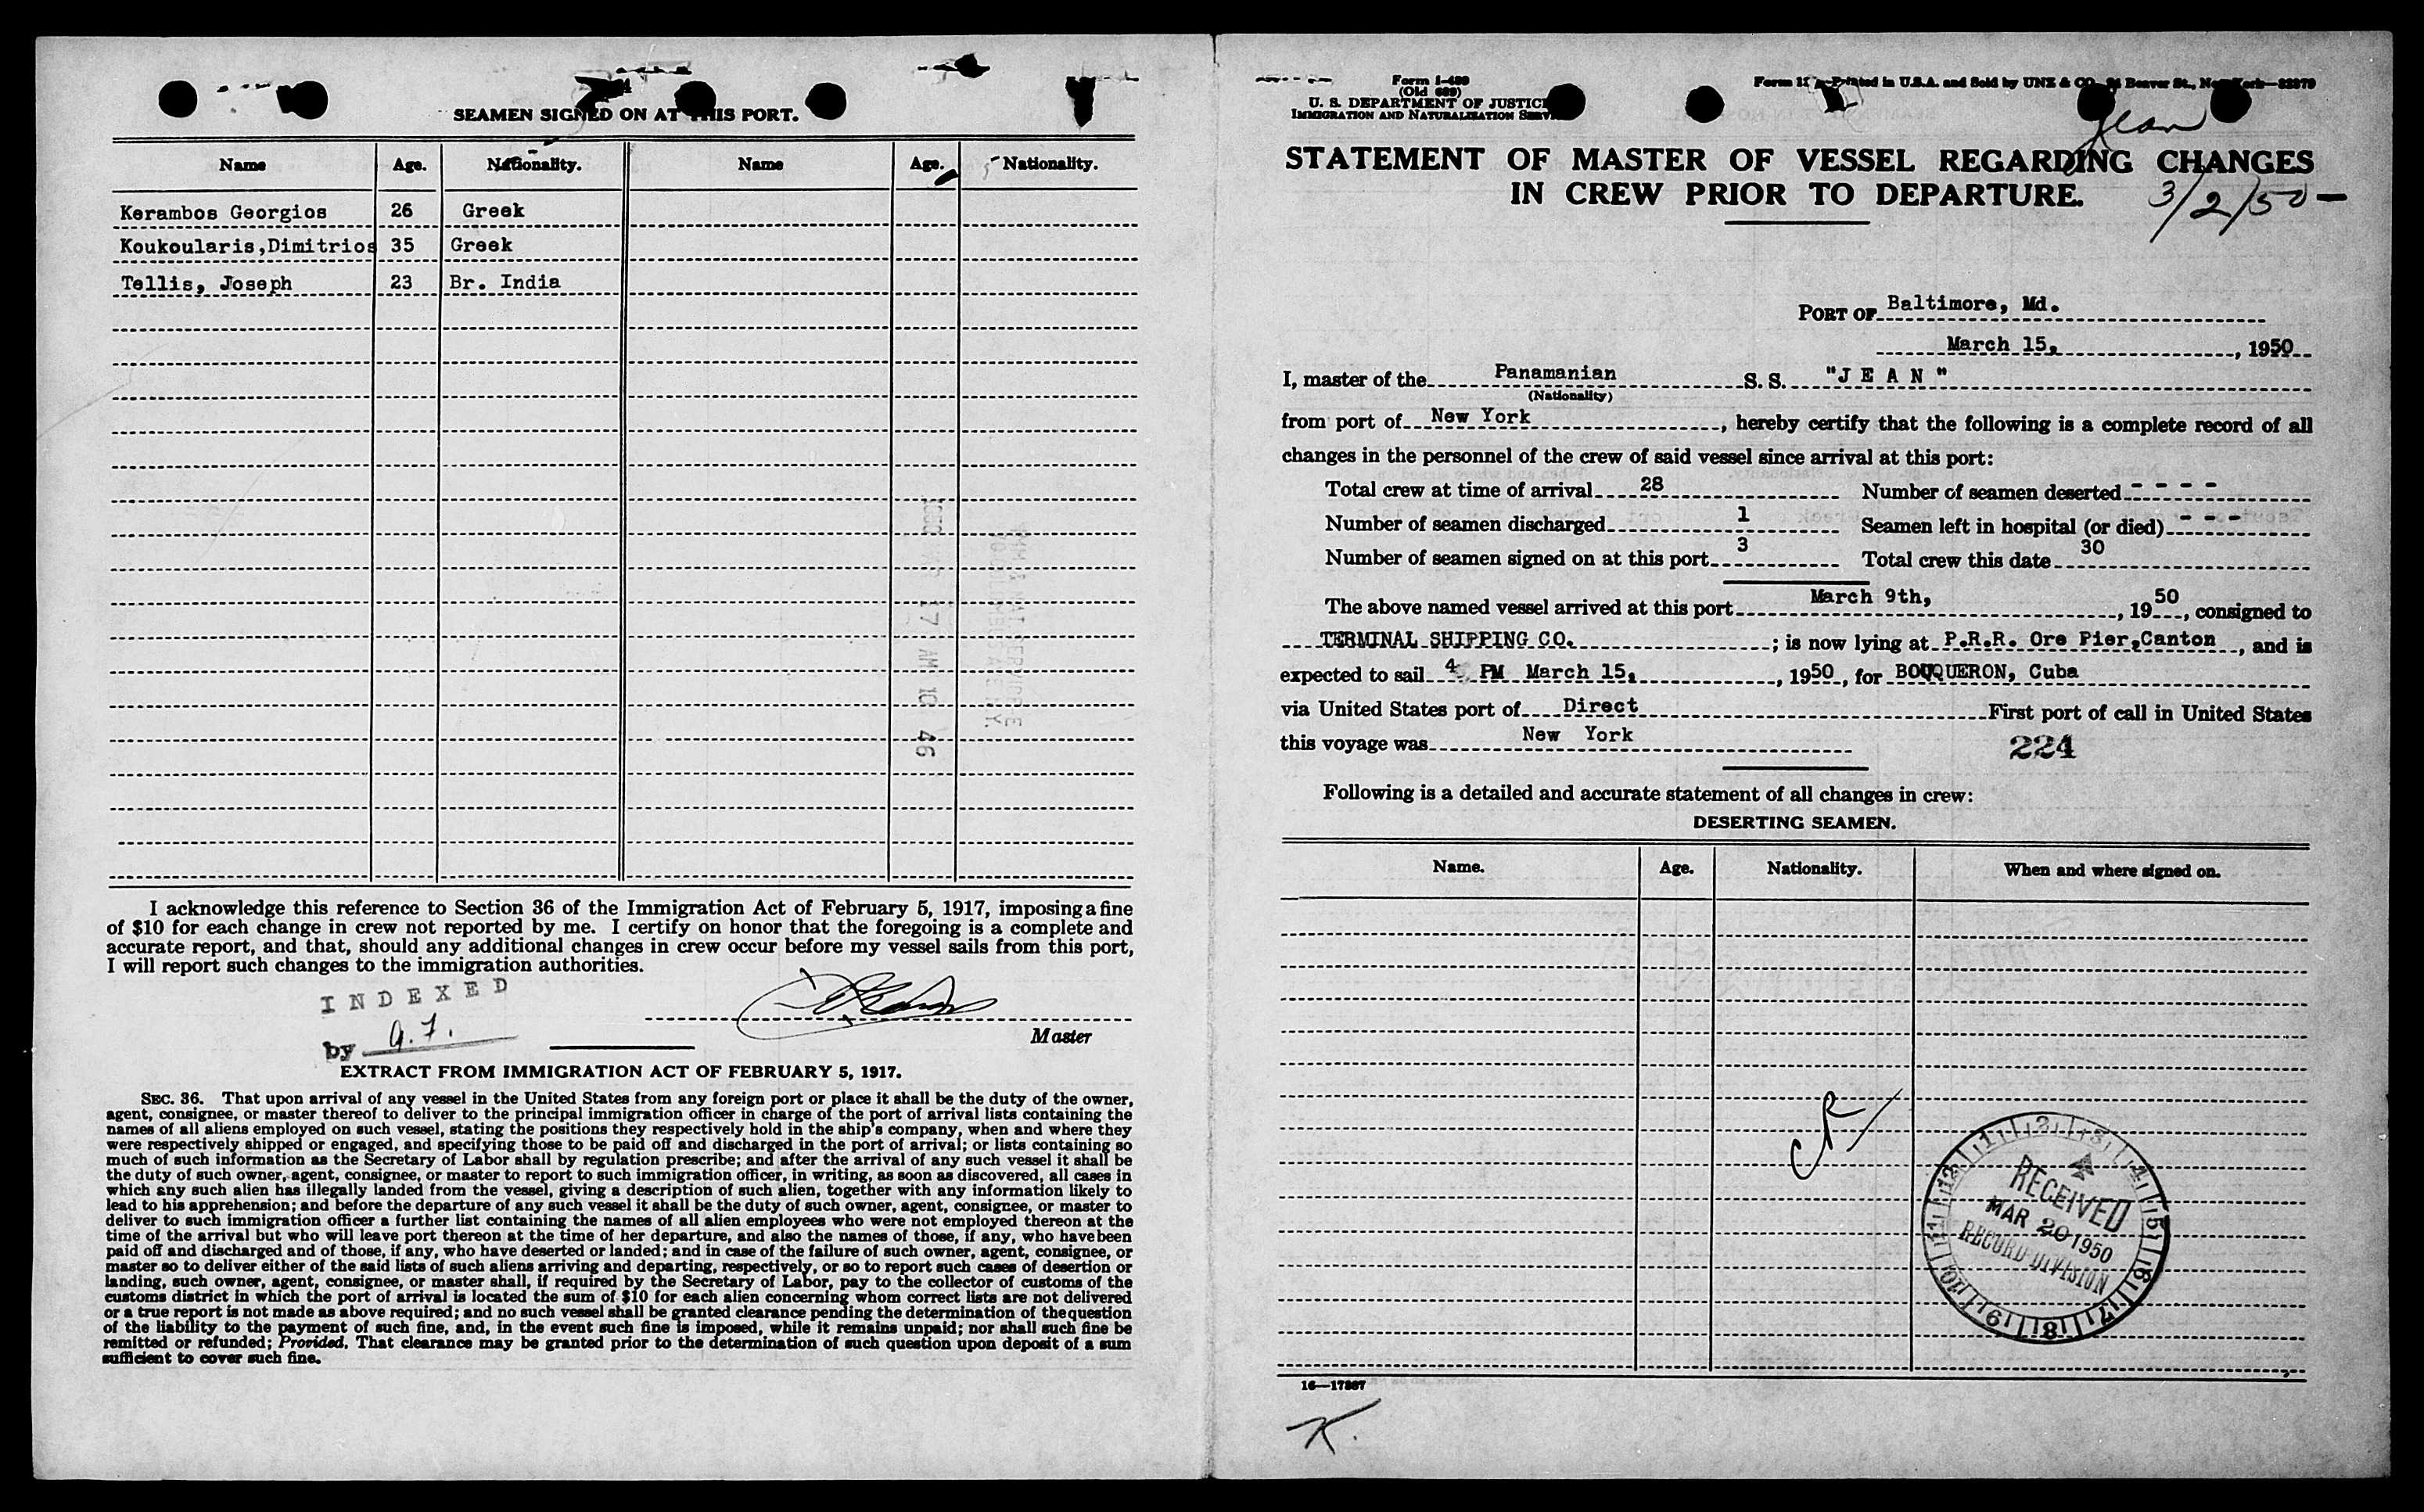 SEAMEN SIGNED ON AT THIS PORT.
Name Age. Nationality. Name Age. Nationality.
Kerambos Georgios 26 Greek
Koukoularis,Dimitrios 35 Greek
Tellis, Joseph 23 Br. India
17 AM 10 46
I acknowledge this reference to Section 36 of the Immigration Act of February 5, 1917, imposing a fine
of $10 for each change in crew not reported by me. I certify on honor that the foregoing is a complete and
accurate report, and that, should any additional changes in crew occur before my vessel sails from this port,
I will report such changes to the immigration authorities.
INDEXED
by
Master
EXTRACT FROM IMMIGRATION ACT OF FEBRUARY 5, 1917.
SEC. 36. That upon arrival of any vessel in the United States from any foreign port or place it shall be the duty of the owner,
agent, consignee, or master thereof to deliver to the principal immigration officer in charge of the port of arrival lists containing the
names of all aliens employed on such vessel, stating the positions they respectively hold in the ship's company, when and where they
were respectively shipped or engaged, and specifying those to be paid off and discharged in the port of arrival; or lists containing so
much of such information as the Secretary of Labor shall by regulation prescribe; and after the arrival of any such vessel it shall be
the duty of such owner, agent, consignee, or master to report to such immigration officer, in writing, as soon as discovered, all cases in
which any such alien has illegally landed from the vessel, giving a description of such alien, together with any information likely to
lead to his apprehension; and before the departure of any such vessel it shall be the duty of such owner, agent, consignee, or master to
deliver to such immigration officer a further list containing the names of all alien employees who were not employed thereon at the
time of the arrival but who will leave port thereon at the time of her departure, and also the names of those, if any, who have been
paid off and discharged and of those, if any, who have deserted or landed; and in case of the failure of such owner, agent, consignee, or
master so to deliver either of the said lists of such aliens arriving and departing, respectively, or so to report such cases of desertion or
landing, such owner, agent, consignee, or master shall, if required by the Secretary of Labor, pay to the collector of customs of the
customs district in which the port of arrival is located the sum of $10 for each alien concerning whom correct lists are not delivered
or a true report is not made as above required; and no such vessel shall be granted clearance pending the determination of the question
of the liability to the payment of such fine, and, in the event such fine is imposed, while it remains unpaid; nor shall such fine be
remitted or refunded; Provided, That clearance may be granted prior to the determination of such question upon deposit of a sum
sufficient to cover such fine.
Form I-489
(Old 689)
U. S. DEPARTMENT OF JUSTICE
IMMIGRATION AND NATURALIZATION SERVICE
Printed in U.S.A. and Sold by UNZ & CO., 24 Beaver St., New York—22379
Jean
STATEMENT OF MASTER OF VESSEL REGARDING CHANGES
IN CREW PRIOR TO DEPARTURE.
3/2/50-
PORT OF Baltimore, Md.
March 15, , 1950
I, master of the Panamanian S. S. "J E A N"
(Nationality)
from port of New York , hereby certify that the following is a complete record of all
changes in the personnel of the crew of said vessel since arrival at this port:
Total crew at time of arrival 28 Number of seamen deserted - - - -
Number of seamen discharged 1 Seamen left in hospital (or died) - - -
Number of seamen signed on at this port 3 Total crew this date 30
The above named vessel arrived at this port March 9th, , 1950, consigned to
TERMINAL SHIPPING CO. ; is now lying at P.R.R. Ore Pier,Canton , and is
expected to sail 4 PM March 15, , 1950, for BOUQUERON, Cuba
via United States port of Direct First port of call in United States
this voyage was New York
224
Following is a detailed and accurate statement of all changes in crew:
DESERTING SEAMEN.
Name. Age. Nationality. When and where signed on.
CR
RECEIVED
MAR 20 1950
RECORD DIVISION
1 2 3 4 5 6 7 8 9 10 11 12
16—17387
K.